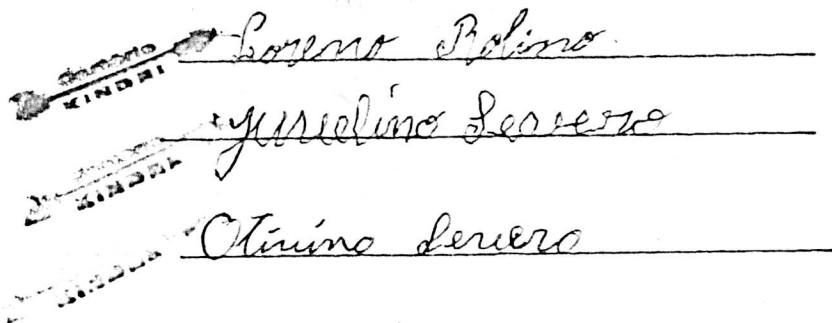 Cartório Loreno Rolino
KINDRI
Juscelino Severo
KINDRI
Otinino Severo
KINDRI